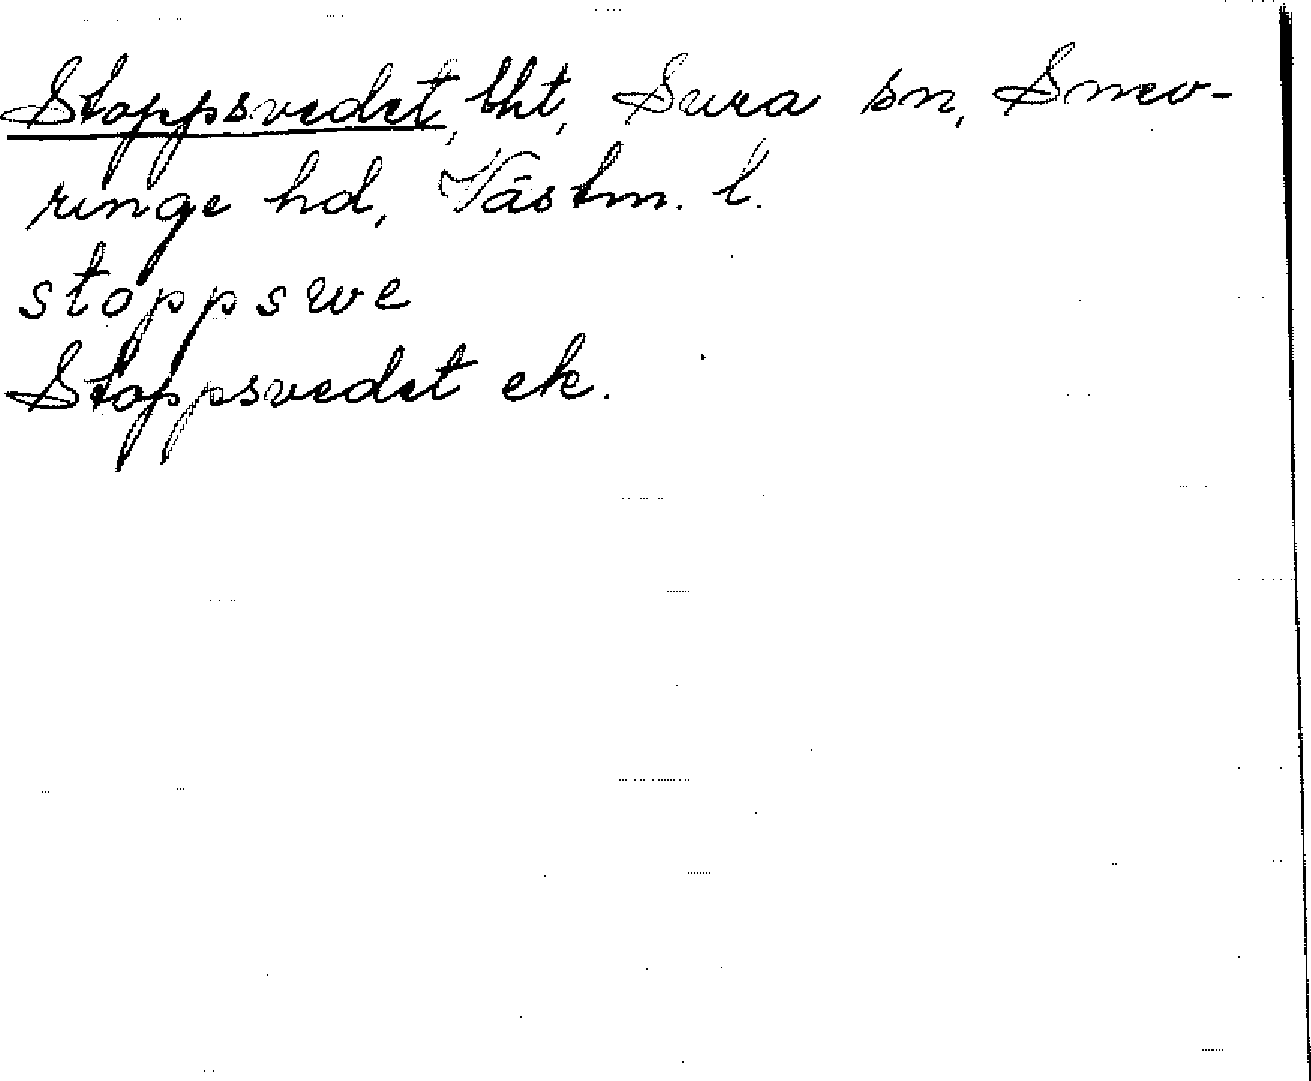 Stoppsvedet, tht, Sura sn, Snev-
ringe hd, Västm. l.
stoppswe
Stoppsvedet ek.